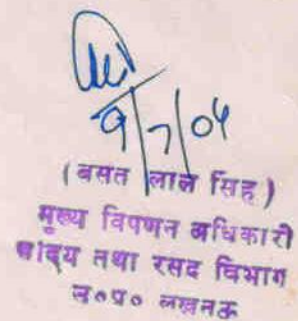 9/7/04
(बसंत लाल सिंह)
मुख्य विपणन अधिकारी
खाद्य तथा रसद विभाग
उ०प्र० लखनऊ